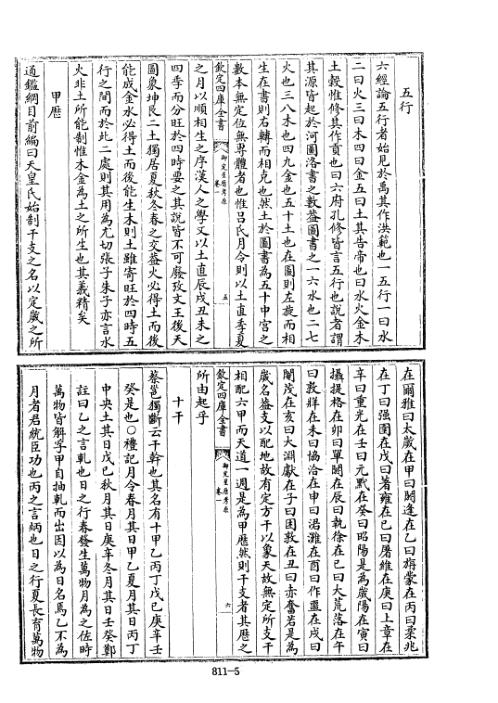 五行
六經論五行者始見於禹其作洪範也一五行一曰水
二曰火三曰木四曰金五曰土其告帝也曰水火金木
土穀惟修其作貢也曰六府孔修皆言五行也說者謂
其源皆起於河圖洛書之數蓋圖書之一六水也二七
火也三八木也四九金也五十土也在圖則左旋而相
生在書則右轉而相克也然土於圖書為五十中宮之
數本無定位無專體者也惟呂氏月令則以土直季夏
欽定四庫全書
御定星歷考原
卷一
五
之月以順相生之序漢人之學又以土直辰戌丑未之
四季而分旺於四時要之其說皆不可廢攷文王後天
圖象坤艮二土獨居夏秋冬春之交蓋火必得土而後
能成金水必得土而後能生木則土雖寄旺於四時五
行之間而於此二處則其用為尤切張子朱子亦言水
火非土所能制惟木金為土之所生也其義精矣
甲歷
通鑑綱目前編曰天皇氏始制干支之名以定歲之所
在爾雅曰太歲在甲曰閼逢在乙曰旃蒙在丙曰柔兆
在丁曰强圉在戊曰著雍在已曰屠維在庚曰上章在
辛曰重光在壬曰元黓在癸曰昭陽是為歲陽在寅曰
攝提格在卯曰單閼在辰曰執徐在巳曰大荒落在午
曰敦牂在未曰協洽在申曰涒灘在酉曰作噩在戌曰
閹茂在亥曰大淵獻在子曰困敦在丑曰赤奮若是為
歲名蓋支以配地故有定方干以象天故無定所支干
相配六甲而天道一週是為甲歷然則干支者其歷之
欽定四庫全書
御定星歷考原
卷一
六
所由起乎
十干
蔡邕獨斷云干幹也其名有十甲乙丙丁戊己庚辛壬
癸是也○禮記月令春月其日甲乙夏月其日丙丁
中央土其日戊己秋月其日庚辛冬月其日壬癸鄭
註曰乙之言軋也日之行春發生萬物月為之佐時
萬物皆解孚甲自抽軋而出因以為日名焉乙不為
月者君統臣功也丙之言炳也日之行夏長育萬物
811-5